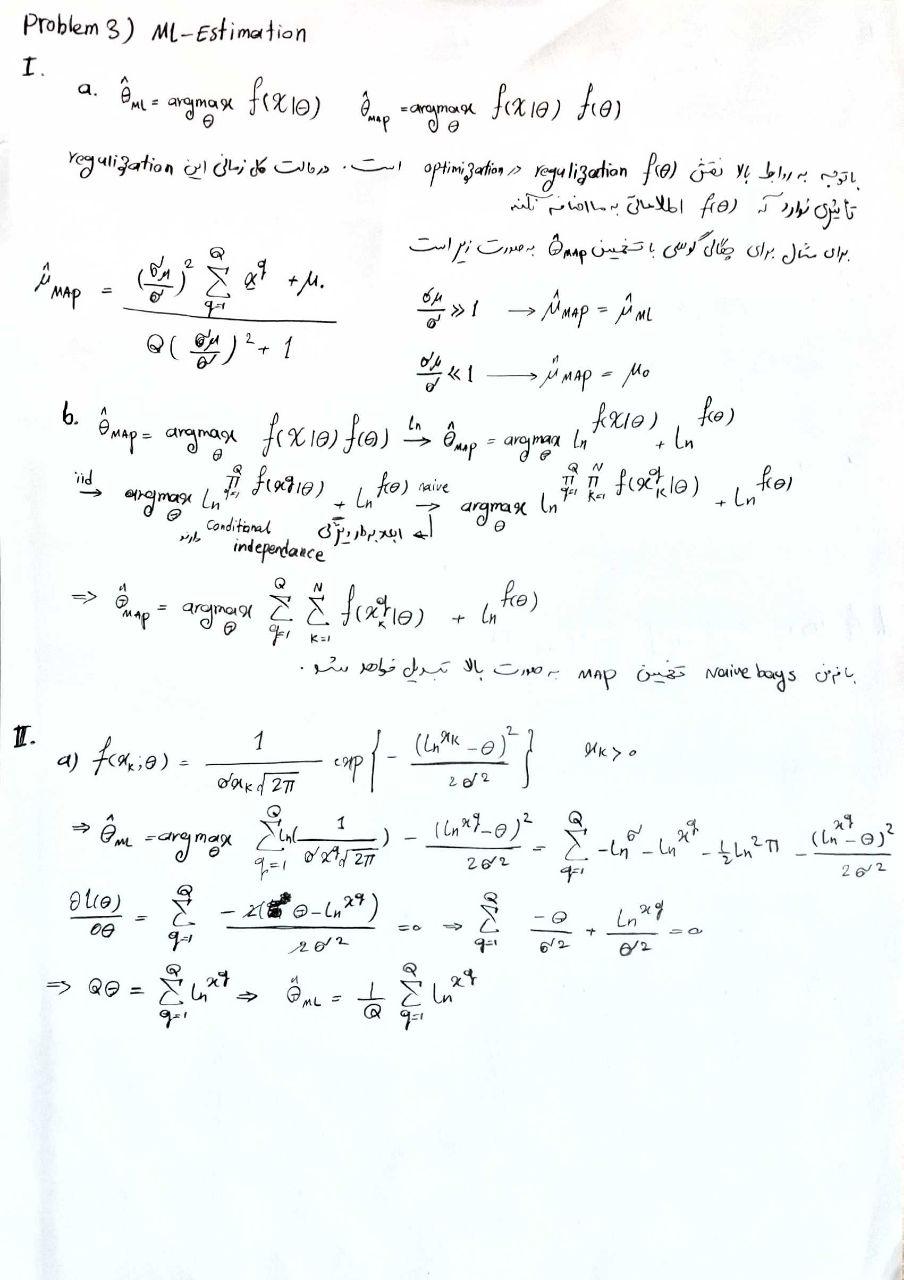 Problem 3) ML-Estimation
I.
a. θ̂_ML = argmax_θ f(X|θ)   θ̂_MAP = argmax_θ f(X|θ) f(θ)
باتوجه به روابط بالا نقش f(θ) regulization در optimization است. در حالت کلی زمانی این regulization
تاثیری ندارد که f(θ) اطلاعاتی به ما اضافه نکند
برای مثال برای چگالی گوسی با تخمین θ̂_MAP به صورت زیر است
μ̂_MAP = ((σμ/σ)^2 Σ_{q=1}^{Q} x^q + μ.) / (Q(σμ/σ)^2 + 1)
σμ/σ >> 1 → μ̂_MAP = μ̂_ML
σμ/σ << 1 → μ̂_MAP = μ₀
b. θ̂_MAP = argmax_θ f(X|θ) f(θ) →^{ln} θ̂_MAP = argmax_θ ln f(X|θ) + ln f(θ)
→^{iid} argmax_θ ln Π_{q=1}^{Q} f(x^q|θ) + ln f(θ) →^{naive} argmax_θ ln Π_{q=1}^{Q} Π_{k=1}^{N} f(x_k^q|θ) + ln f(θ)
ابعاد بردار ویژگی
Conditional
independance دارند
⇒ θ̂_MAP = argmax_θ Σ_{q=1}^{Q} Σ_{k=1}^{N} f(x_k^q|θ) + ln f(θ)
با فرض Naive bays تخمین MAP به صورت بالا تبدیل خواهد شد.
II.
a) f(x_k;θ) = 1/(σx_k√2π) exp{-(ln x_k - θ)^2/2σ^2}   x_k > 0
⇒ θ̂_ML = argmax_θ Σ_{q=1}^{Q} ln(1/(σx^q√2π)) - (ln x^q - θ)^2/2σ^2 = Σ_{q=1}^{Q} -ln σ - ln x^q - 1/2 ln 2π - (ln x^q - θ)^2/2σ^2
∂l(θ)/∂θ = Σ_{q=1}^{Q} -2(θ - ln x^q)/2σ^2 = 0 ⇒ Σ_{q=1}^{Q} -θ/σ^2 + ln x^q/σ^2 = 0
⇒ Qθ = Σ_{q=1}^{Q} ln x^q ⇒ θ̂_ML = 1/Q Σ_{q=1}^{Q} ln x^q